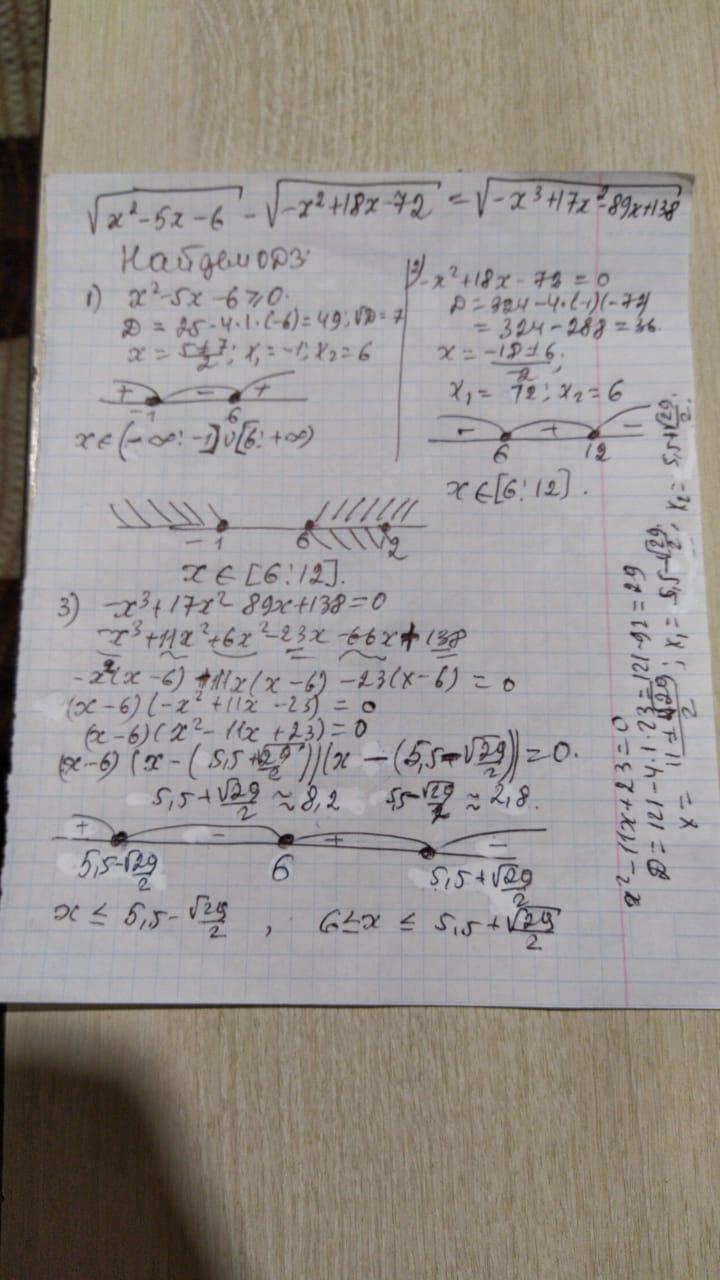 √(x²-5x-6) - √(-x²+18x-72) = √(-x³+17x²-89x+138)
Найдем ОДЗ:
1) x²-5x-6≥0.
D = 25-4·1·(-6)=49; √D=7
x = (5±7)/2; x₁=-1; x₂=6
+ - +
-1 6
x∈(-∞;-1]∪[6;+∞)
2) -x²+18x-72=0
D=324-4·(-1)(-72)
=324-288=36.
x=(-18±6)/2;
x₁= 12; x₂=6
- + -
6 12
x∈[6;12].
-1 6 12
x∈[6;12].
3) -x³+17x²-89x+138=0
-x³+11x²+6x²-23x-66x+138
-x²(x-6)+11x(x-6)-23(x-6)=0
(x-6)(-x²+11x-23)=0
(x-6)(x²-11x+23)=0
(x-6)(x-(5,5+√29/2))(x-(5,5-√29/2))=0.
5,5+√29/2≈8,2 5,5-√29/2≈2,8.
+ - + -
5,5-√29/2 6 5,5+√29/2
x≤5,5-√29/2, 6≤x≤5,5+√29/2
x²-11x+23=0
D=121-4·1·23=121-92=29
x=(11±√29)/2; x₁=5,5-√29/2; x₂=5,5+√29/2.